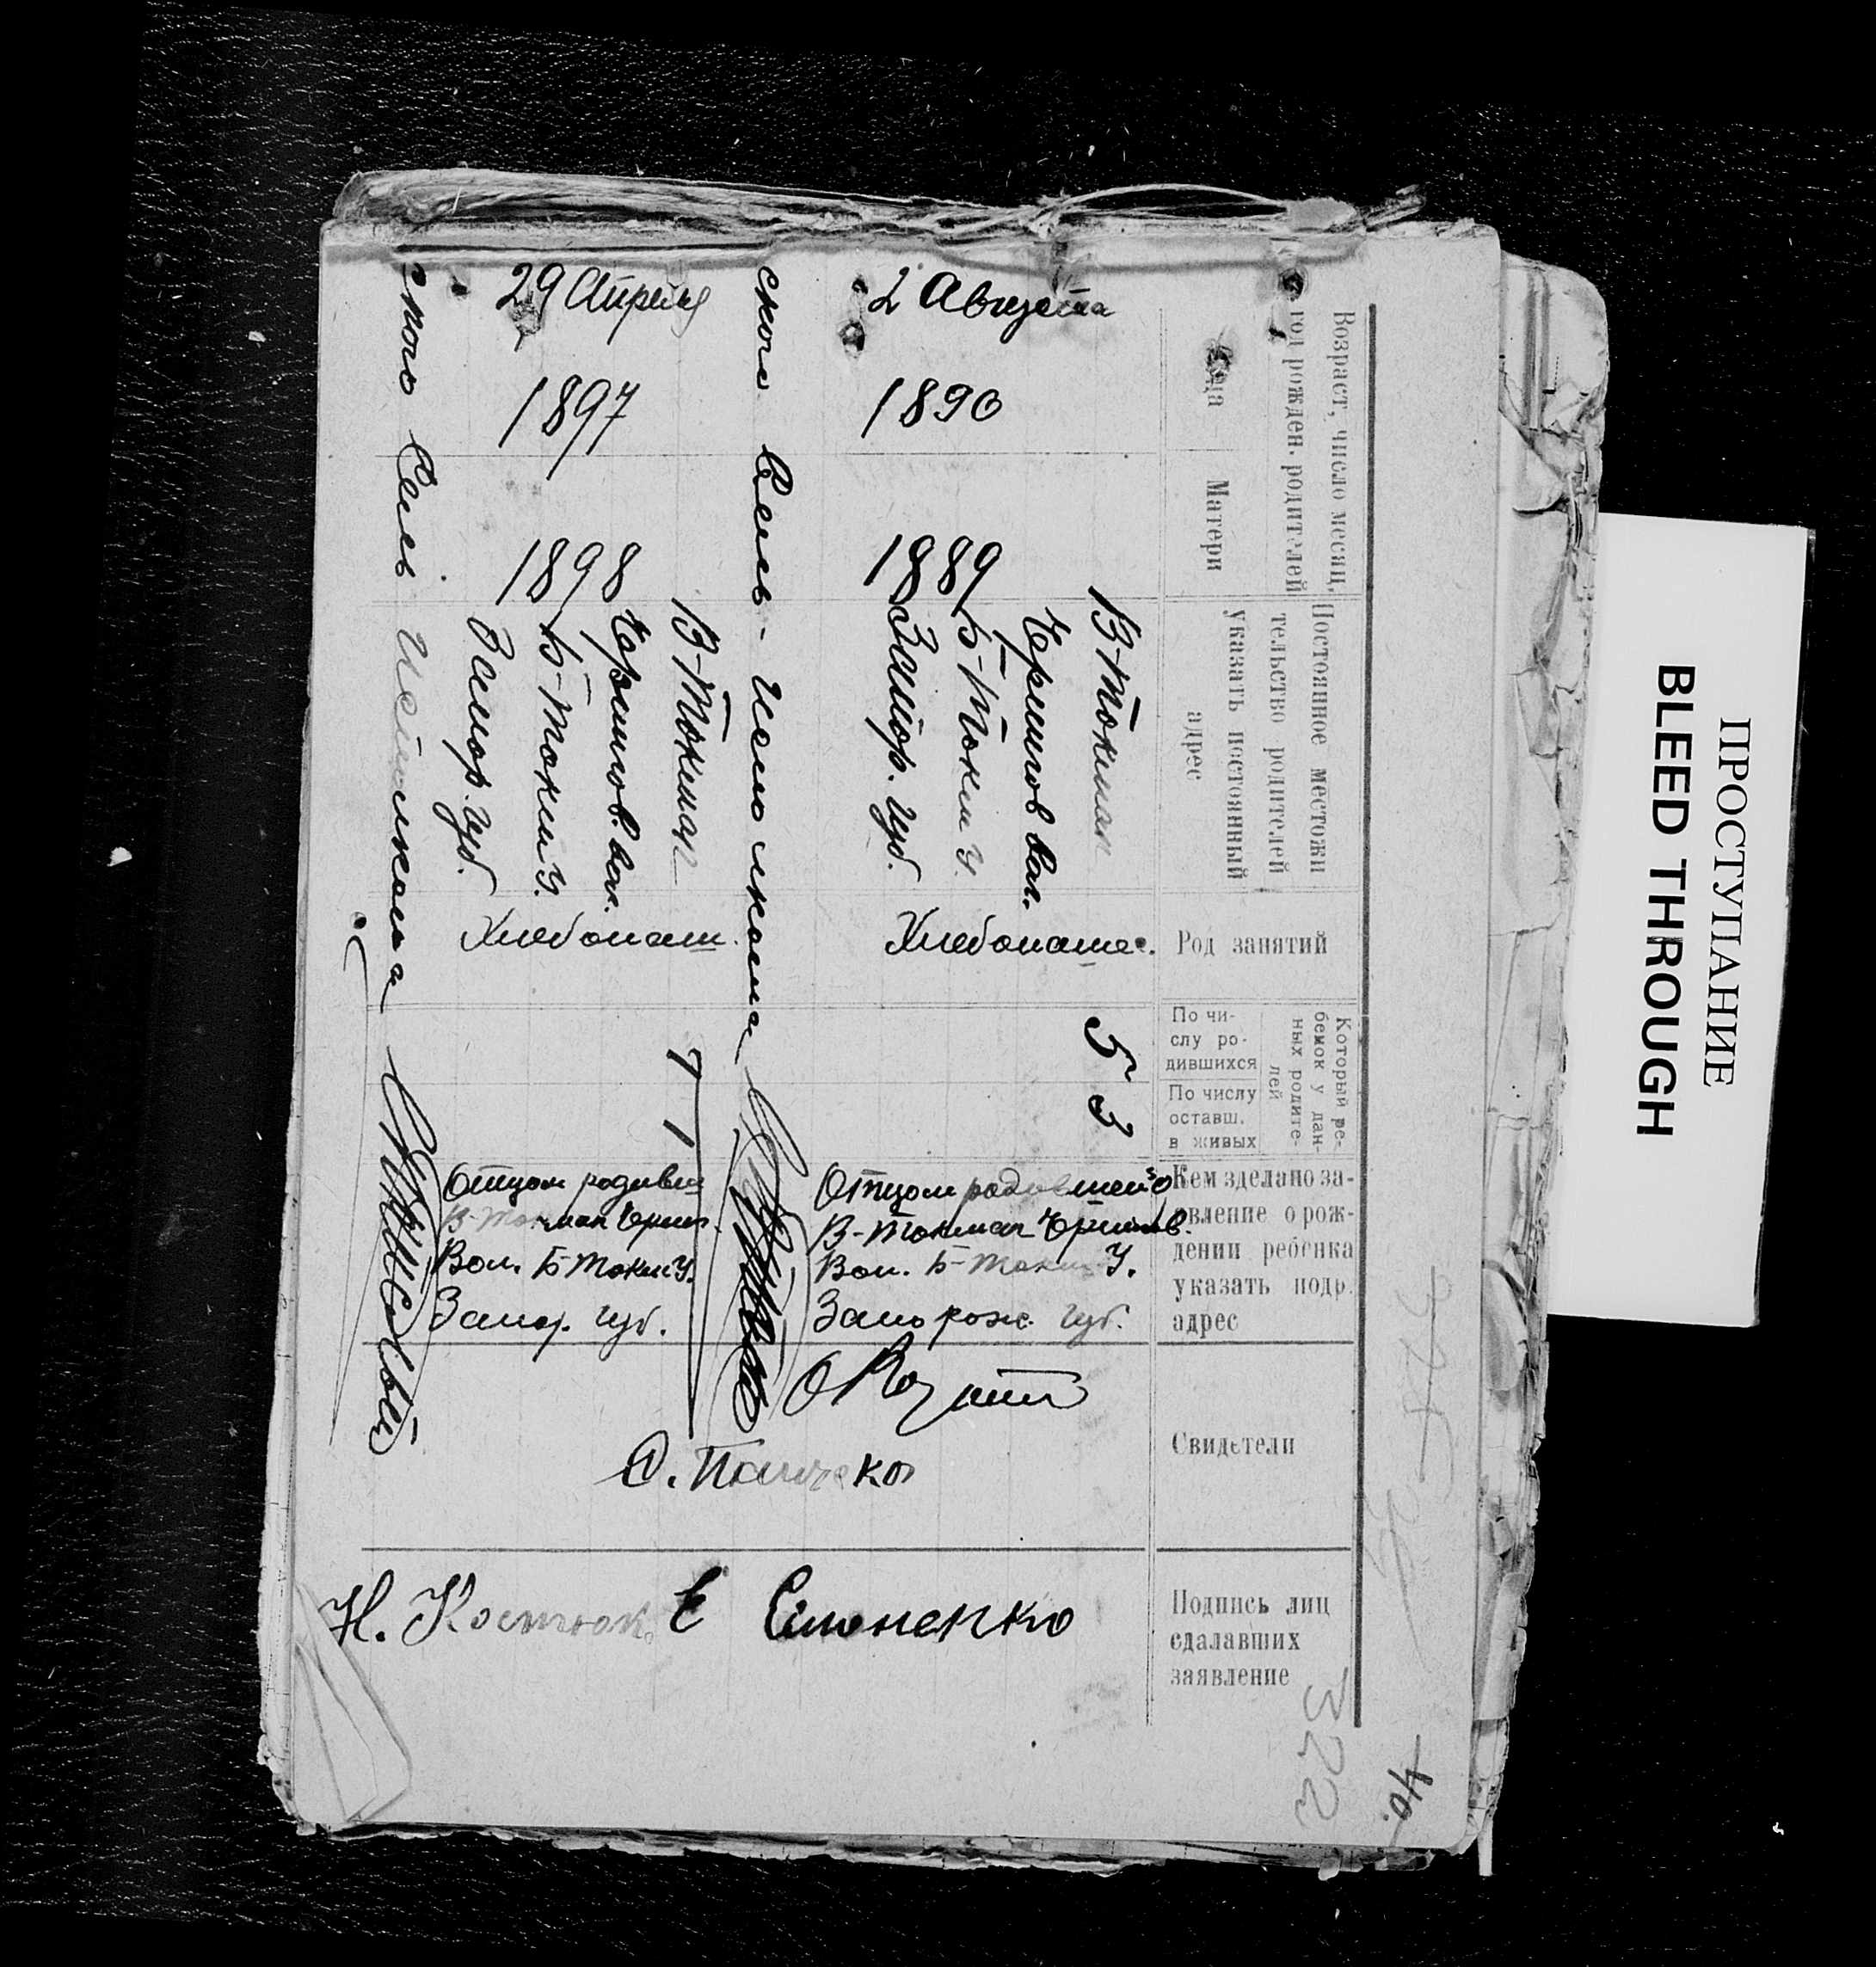 Возраст, число месяц,
год рожден. родителей
Отца
Матери
Постоянное местожи
тельство родителей
указать постоянный
адрес
Род занятий
Который ре-
бенок у дан-
ных родите-
лей
По чи-
слу ро-
дившихся
По числу
оставш.
в живых
Кем зделано за-
явление о рож-
дении ребенка
указать подр.
адрес
Свидетели
Подпись лиц
сдалавших
заявление
2 Августа
1890
1889
В-Токмак
Черниговс вол.
Б-Токм у.
Запор. губ.
Хлебопашес.
5
3
Отцом родившего
В-Токмак Черниговс.
Вол. Б-Токм У.
Запорож. губ.
Е Симоненко
ского Сель-Исполкома
29 Апреля
1897
1898
В-Токмак
Чернигов. вол.
Б-Токм У.
Запор. губ.
Хлебопаш.
1
Отцом родивш
В-Токмак Черниг.
Вол. Б-Токм У.
Запор. губ.
Н. Костюк.
ского Сель Исполкома
322
40.
ПРОСТУПАНИЕ
BLEED THROUGH